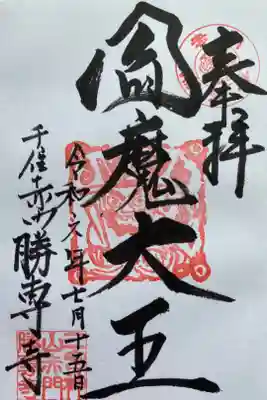 奉拝
閻魔大王
令和六年七月十五日
千住赤門
勝専寺